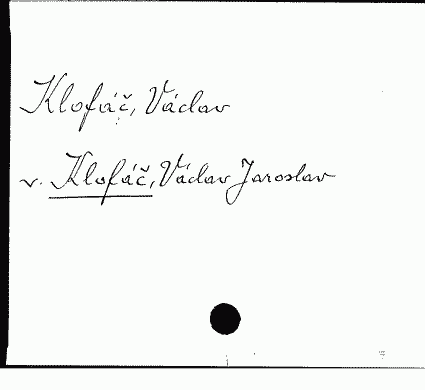 Klofáč, Václav
v. Klofáč, Václav Jaroslav